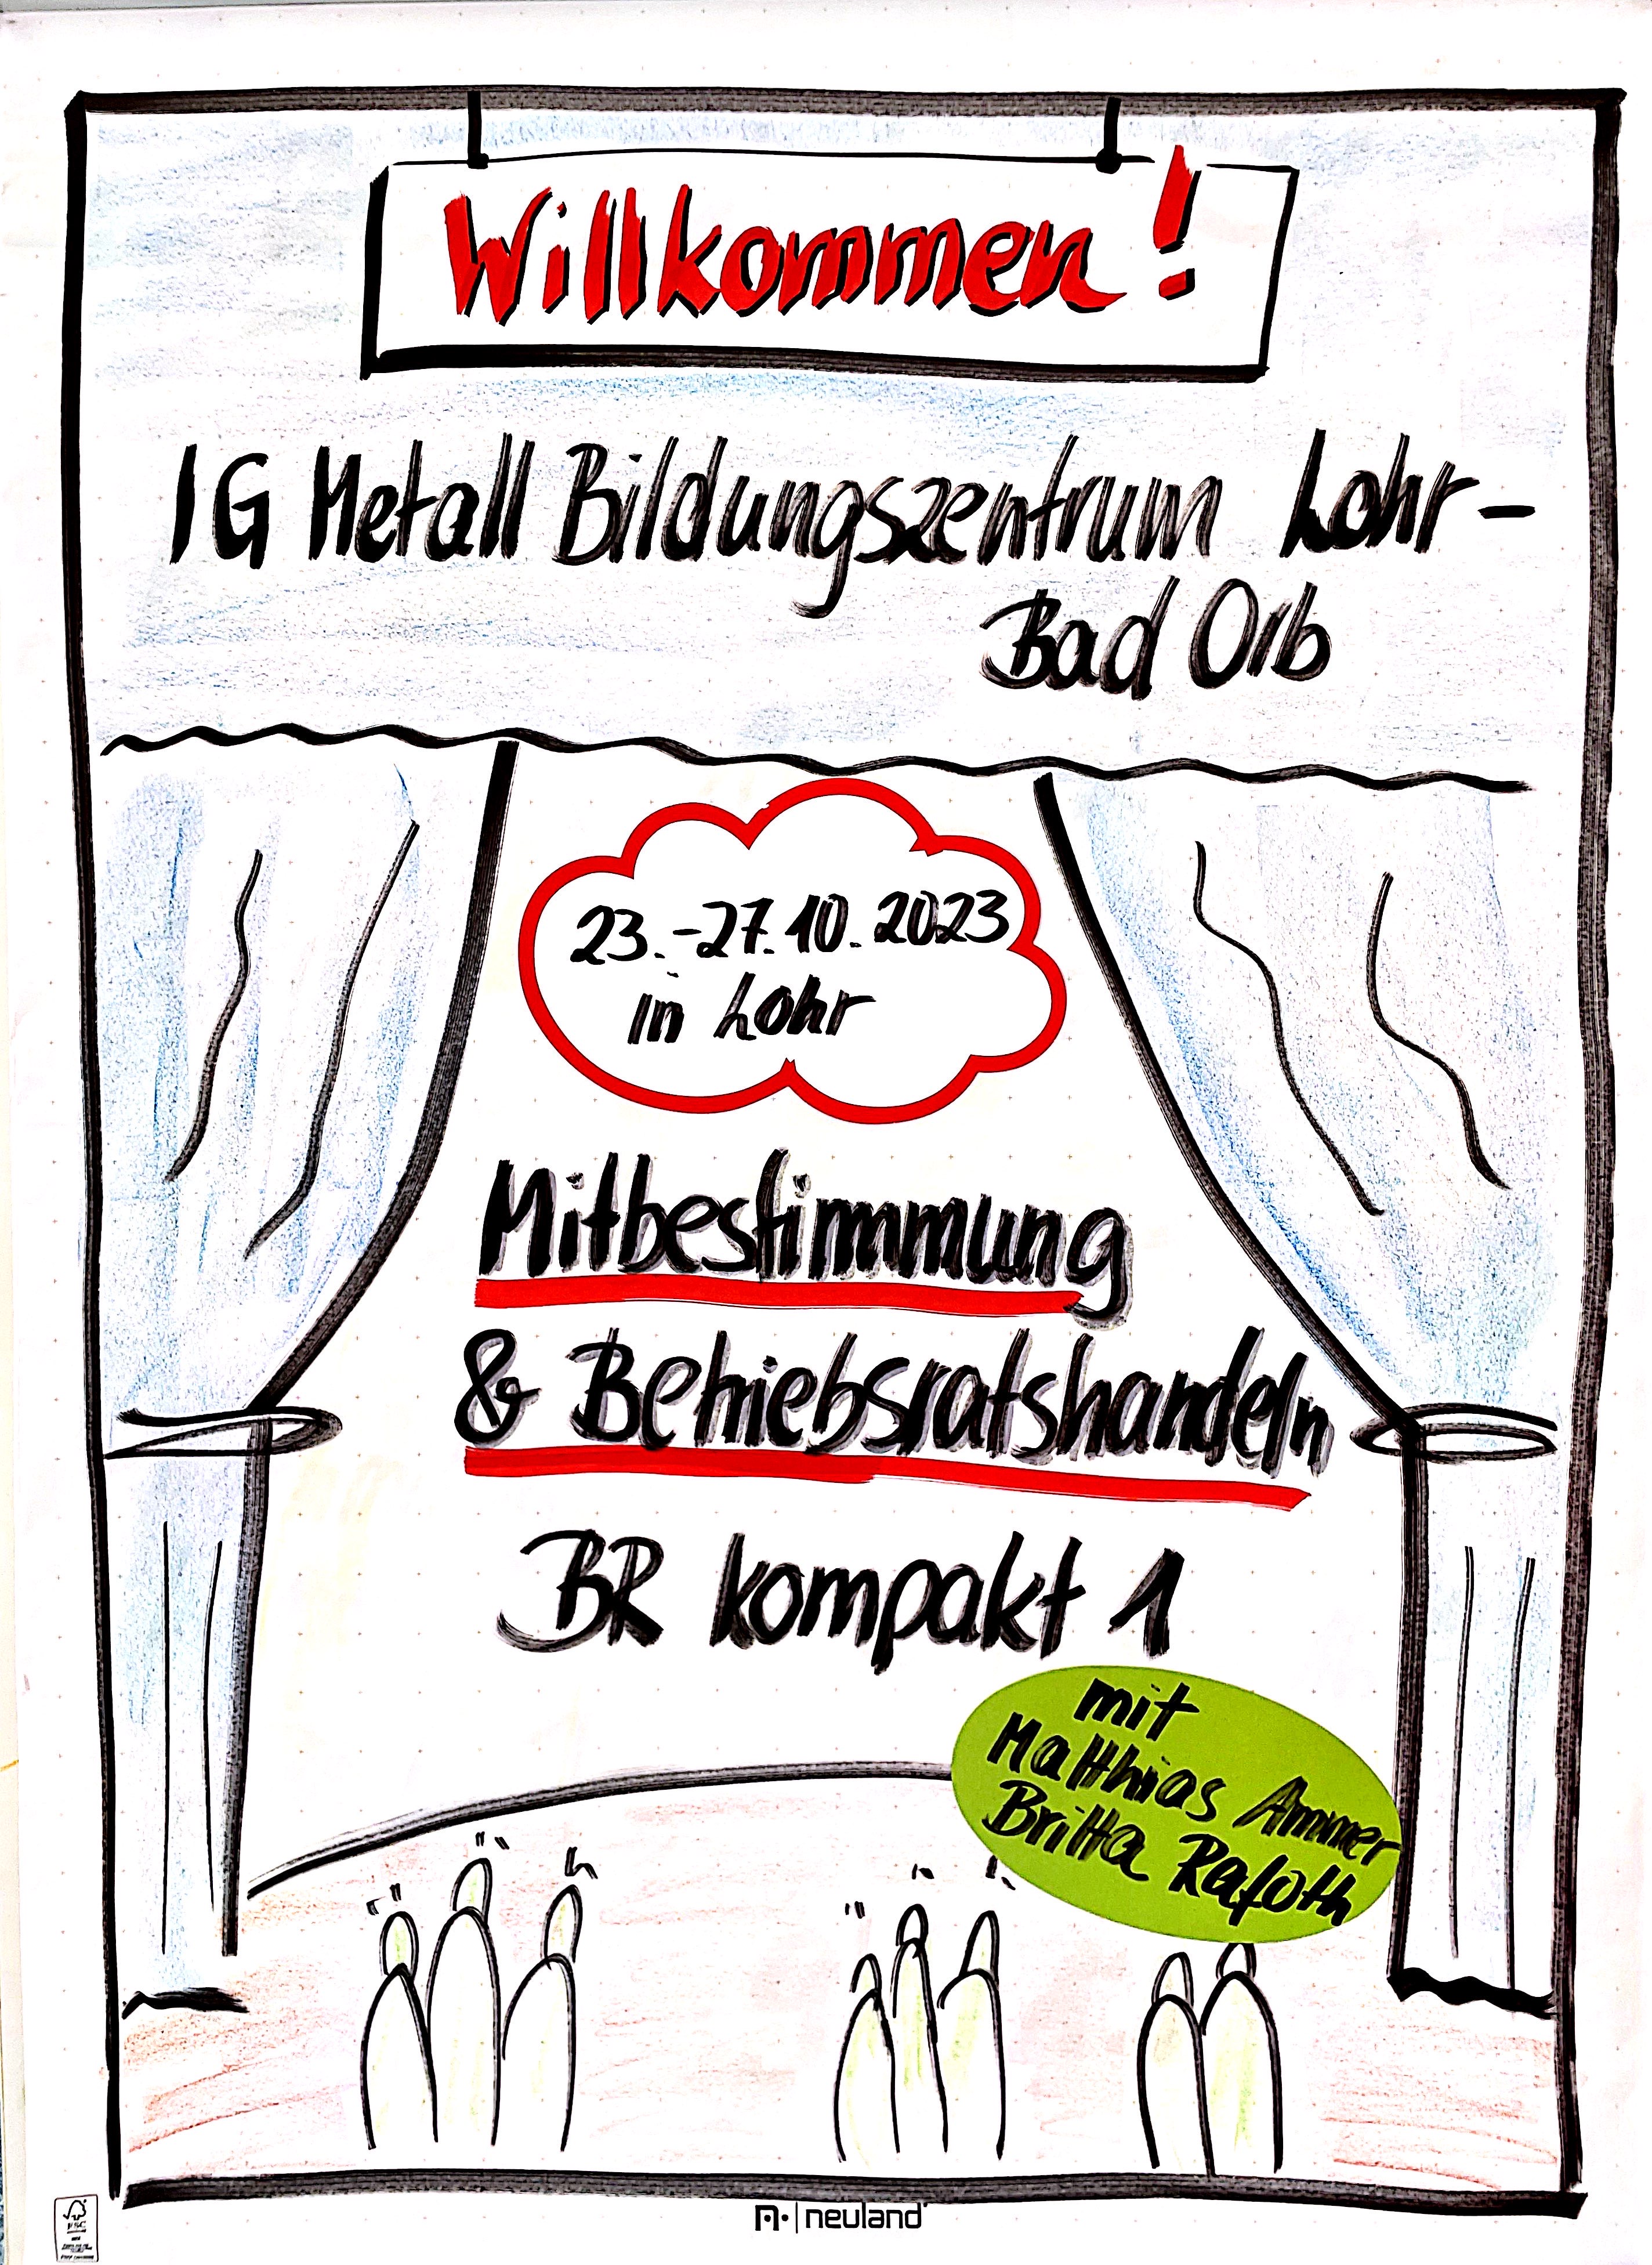 Willkommen!
IG Metall Bildungszentrum Lohr-
Bad Orb
23.-27.10.2023
in Lohr
Mitbestimmung
& Betriebsratshandeln
BR kompakt 1
mit
Matthias Ammer
Britta Rafoth
neuland
FSC